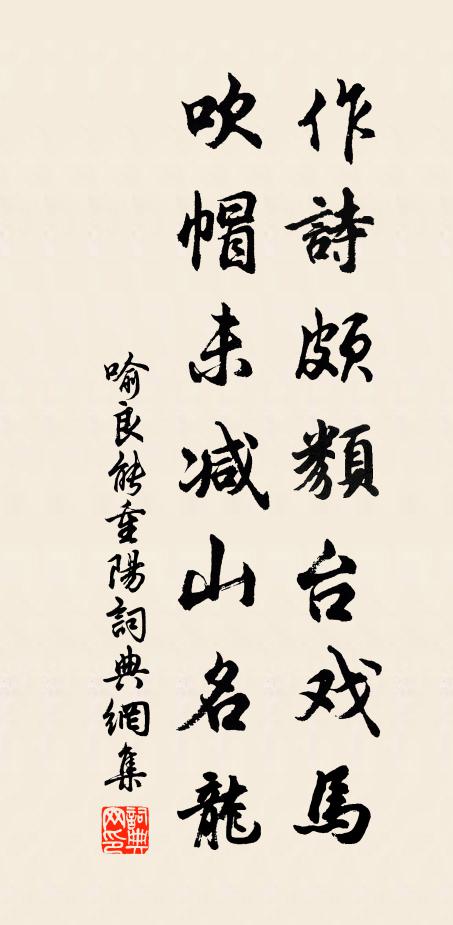 作詩頗類台戏馬
吹帽未減山名龍
喻良能重陽詞典網集
詞典网印